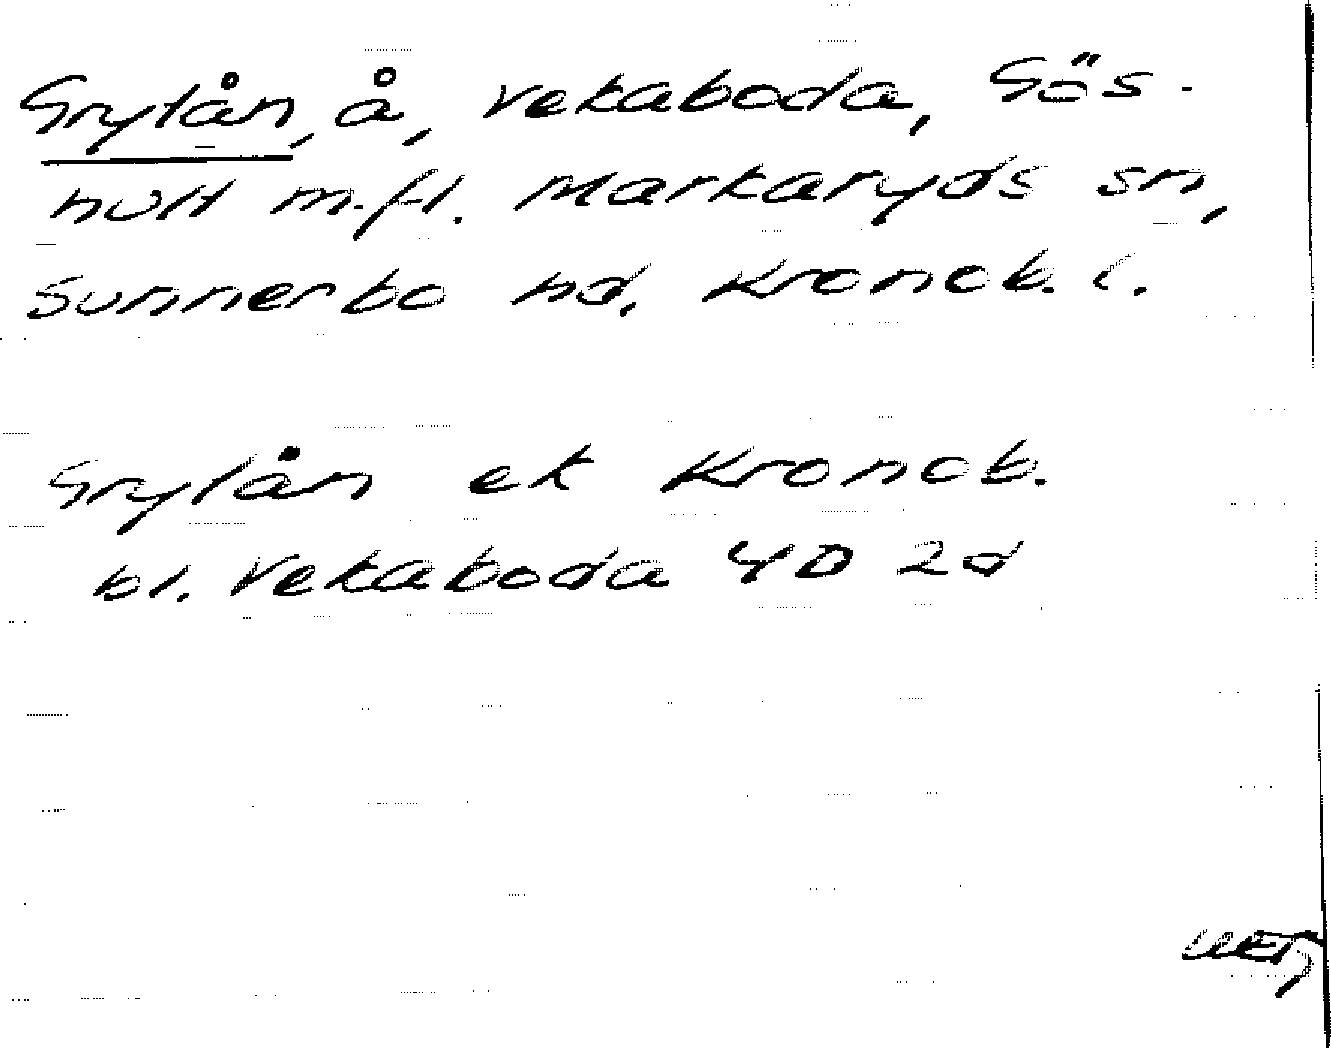 Grylån, å, Vekaboda, Gös-
hult m.fl. Markaryds sn,
Sunnerbo hd. Kronob. l.
Grylån ek Kronob.
bl. Vekaboda 4D 2d